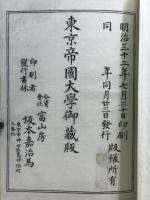 明治三十二年七月二十日印刷
同年同月廿三日發行
版權所有
東京帝國大學御藏版
印刷者
發行書林
合資會社
冨山房
坂本嘉治馬